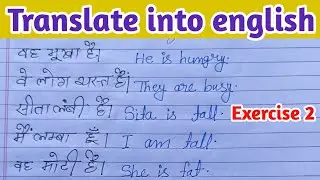 Translate into english
वह भूखा है। He is hungry.
वे लोग व्यस्त हैं। They are busy.
सीता लंबी है। Sita is tall.
Exercise 2
मैं लम्बा हूँ। I am tall.
वह मोटी है। She is fat.